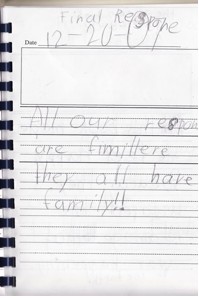 Final Respone
Date 12-20-07
All our respon
are fimillere
they all have
family!!